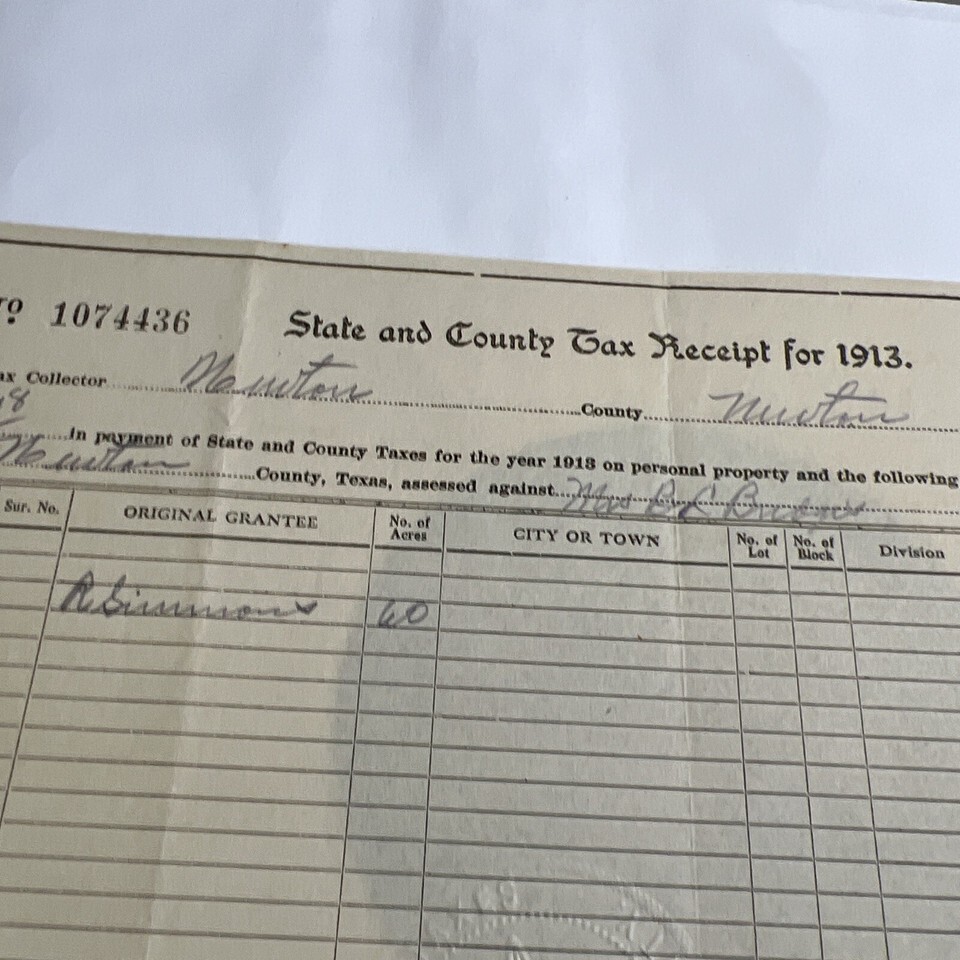 No 1074436 State and County Tax Receipt for 1913.
ax Collector Newton County Newton
8
In payment of State and County Taxes for the year 1913 on personal property and the following
Newton County, Texas, assessed against Mrs
Sur. No. ORIGINAL GRANTEE No. of Acres CITY OR TOWN No. of Lot No. of Block Division
R Simmons 60